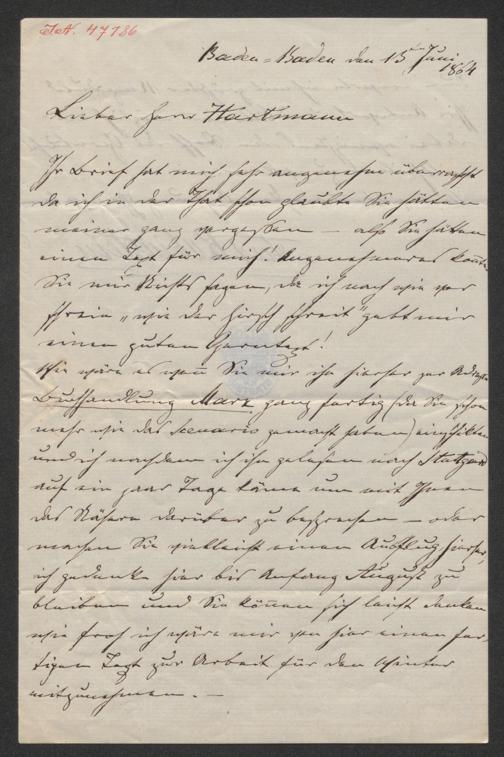 I.N. 47786
Baden-Baden den 15ten Juni
1864
Lieber Herr Hartmann
Ihr Brief hat mich sehr angenehm überrascht
da ich in der That schon glaubte Sie hätten
meiner ganz vergessen – also Sie hätten
einen Text für mich! Angenehmeres könnten
Sie mir Nichts sagen, da ich nach wie vor
schreie „wie der Hirsch schreit" gebt mir
einen guten Operntext!
Wie wäre es wenn Sie mir ihn hierher per Adresse
Buchhandlung Marx ganz fertig (da Sie schon
mehr wie das Scenario gemacht haben) einschickten
und ich nachdem ich ihn gelesen nach Stuttgard
auf ein paar Tage käme um mit Ihnen
das Nähere darüber zu besprechen – oder
machen Sie vielleicht einen Ausflug hierher,
ich gedenke hier bis Anfang August zu
bleiben und Sie können sich leicht denken
wie froh ich wäre mir von hier einen fer-
tigen Text zur Arbeit für den Winter
mitzunehmen. –